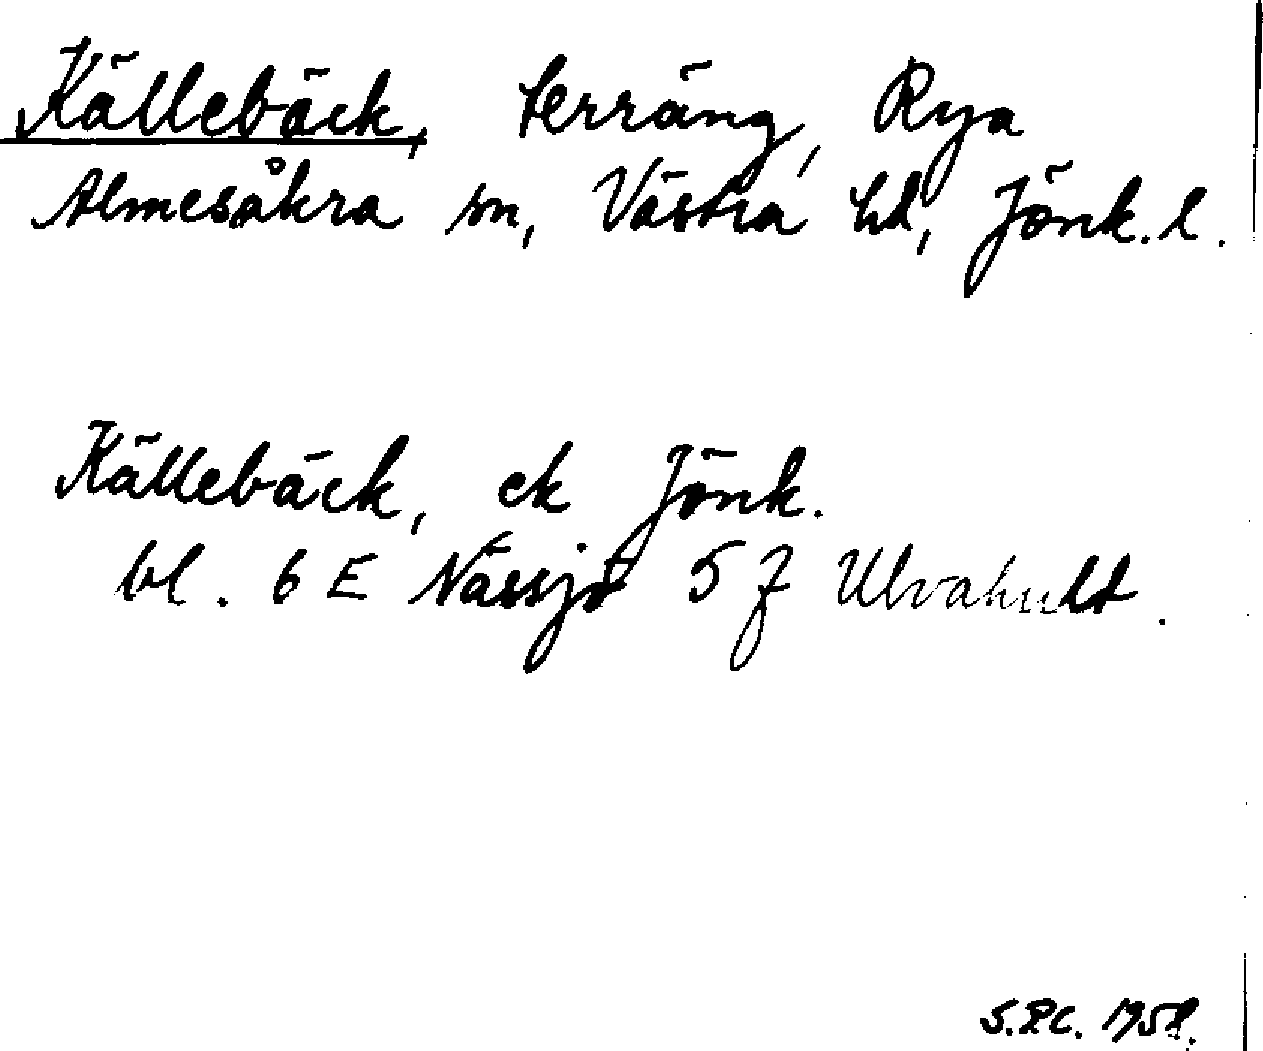 Källebäck, terräng, Rya
Almesåkra sn, Västra hd, Jönk. l.
Källebäck, ek Jönk.
bl. 6 E Nässjö 5 f Ulvahult.
S.P.C. 1958.